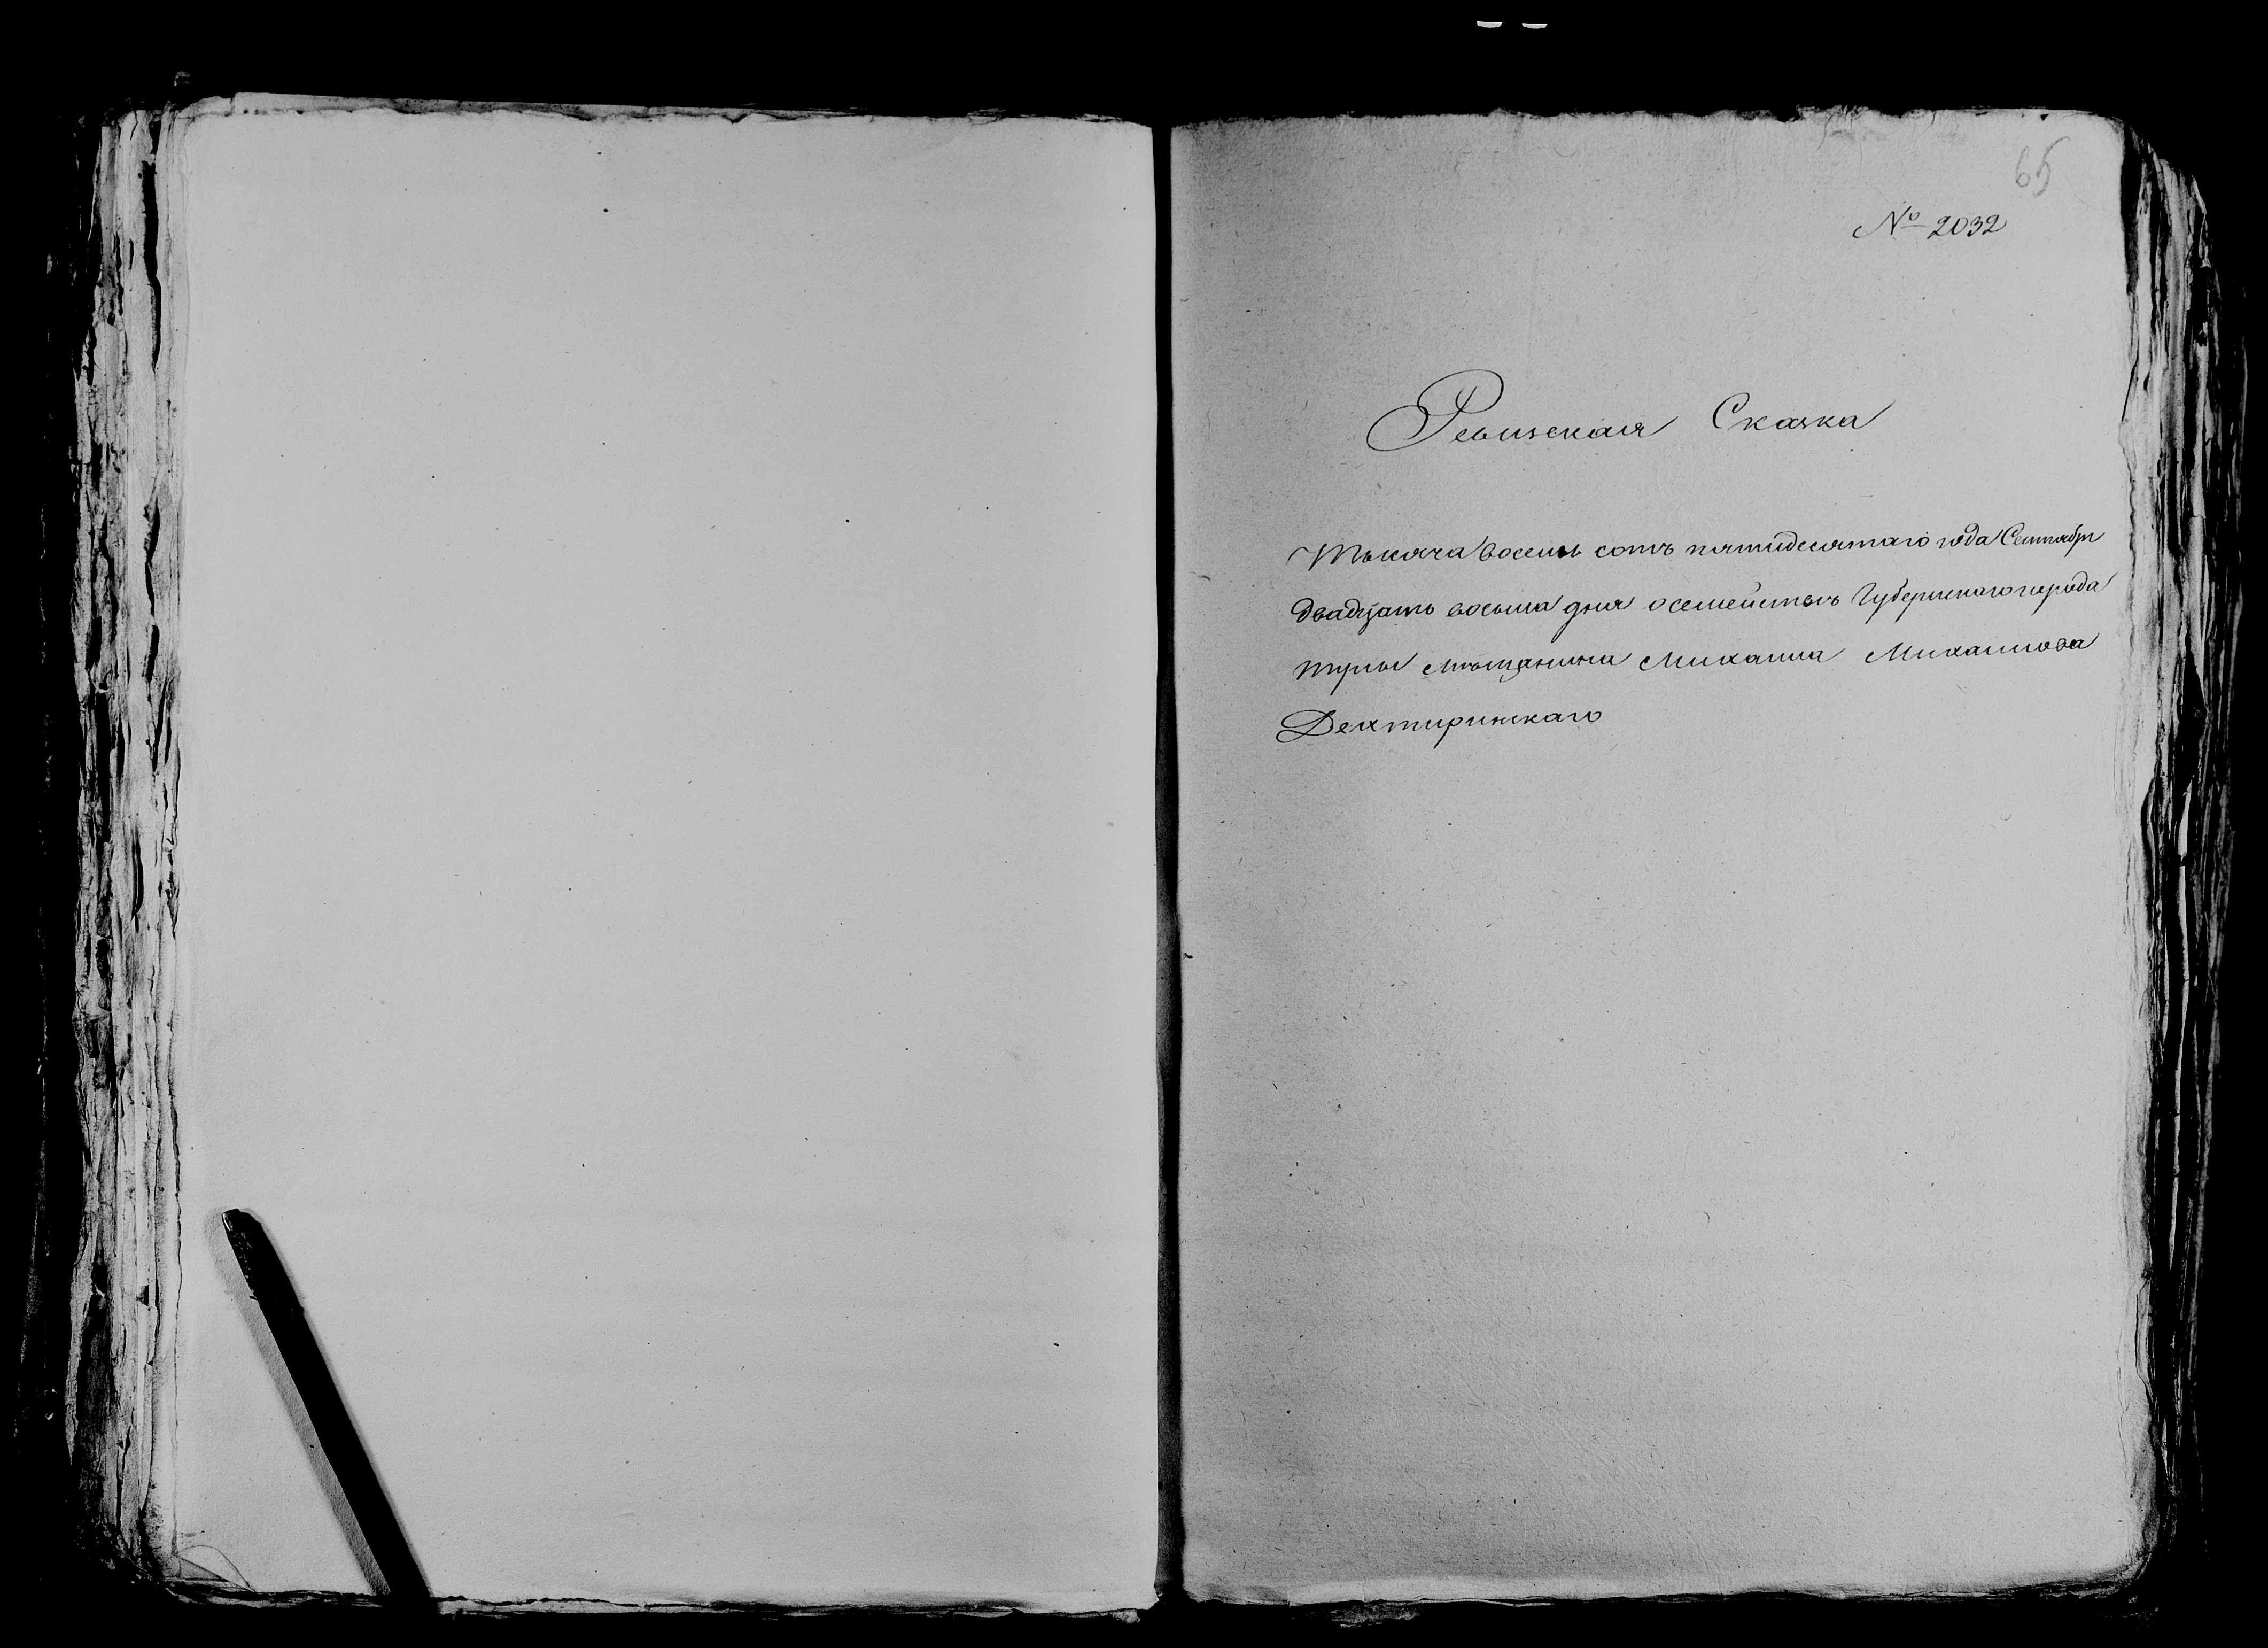 65
№ 2032
Ревизская Сказка
Тысяча восемь сотъ пятидесятаго года Сентября
двадцать восьма дня о семействѣ Губернскаго города
Тулы мѣщанина Михаила Михаилова
Дехтиринскаго